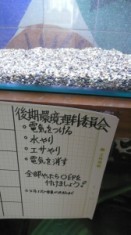 後期環境理科委員会
・電気をつける
・水やり
・エサやり
・電気を消す
全部やったらOをPE
付けましょう!!